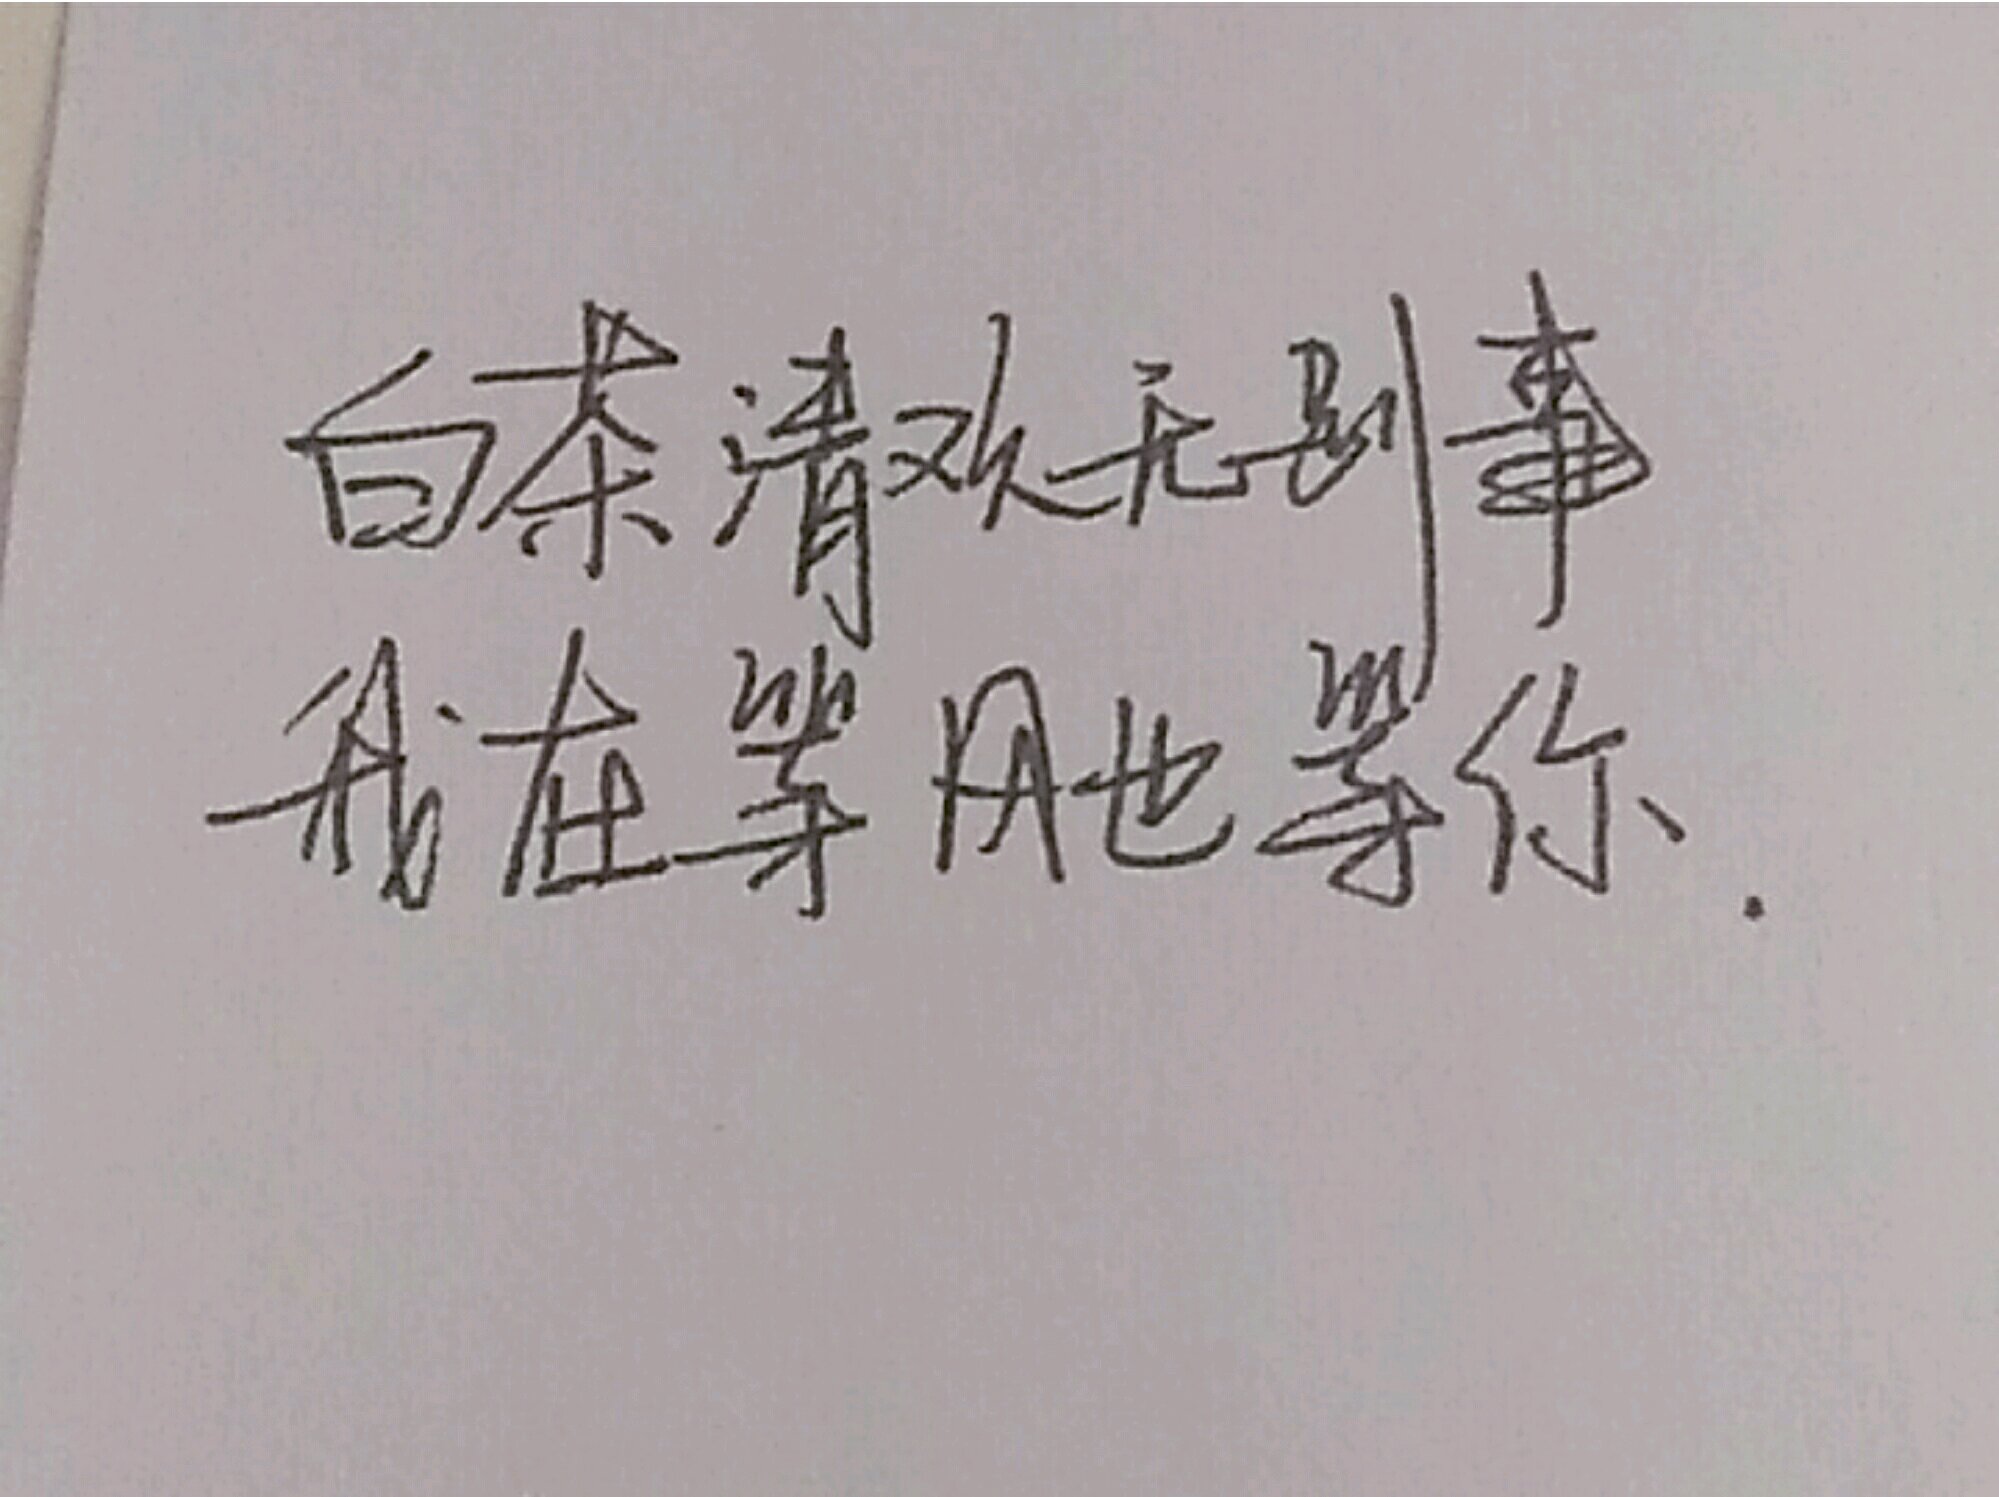 白茶清欢无别事
我在等风也等你.